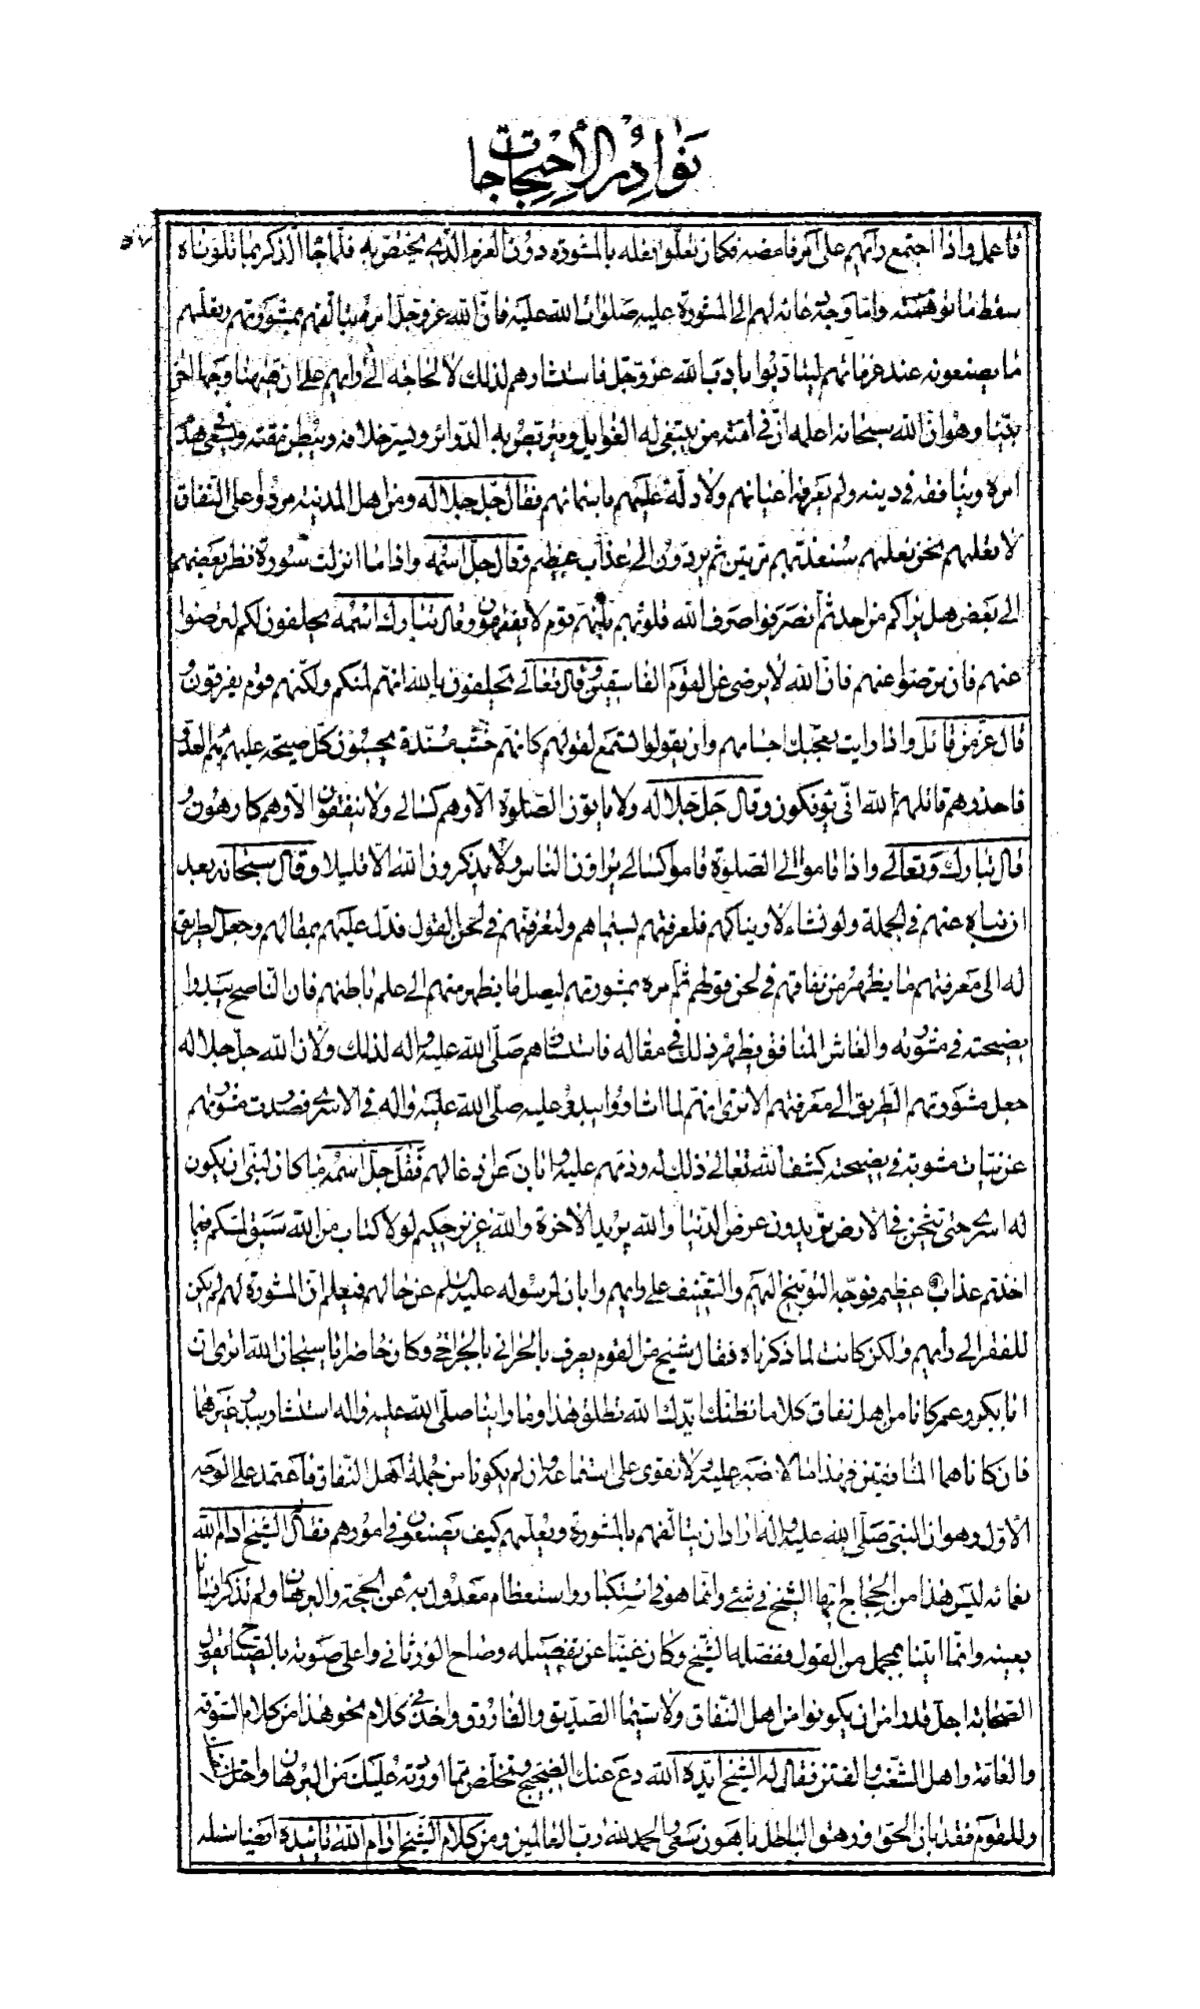 نوادر الاحتجاجات
٥٧
فاعمل واذا اجتمع رأيهم على أمر فامضه فكان تعلّق فعله بالمشورة دون العزم الّذي يختصّ به فلمّا جاء الذكر بما تلوناه
سقط ما توهّمته وامّا وجه دعائه لهم الى المشورة عليه صلوات الله عليه فانّ الله عزّ وجلّ امره بتألّفهم بمشورتهم وتعلّمهم
ما يصنعونه عند عزماتهم ليتأدّبوا بادب الله عزّ وجلّ فاستشارهم لذلك لا للحاجة الى رأيهم على ان ههنا وجها اخر
بيّنا وهو انّ الله سبحانه اعلمه انّ في امّته من يبتغي له الغوايل ويتربّص به الدّوائر ويسرّ خلافه ويبطن مقته ويسعى في هدم
امره وينافقه في دينه ولم يعرفه اعيانهم ولا دلّه عليهم باسمائهم فقال جلّ جلاله ومن اهل المدينة مردوا على النّفاق
لا تعلمهم نحن نعلمهم سنعذّبهم مرّتين ثم يردّون الى عذاب عظيم وقال جلّ اسمه واذا ما انزلت سورة نظر بعضهم
الى بعض هل يراكم من احد ثمّ انصرفوا صرف الله قلوبهم بانّهم قوم لا يفقهون وقال تبارك اسمه يحلفون لكم لترضوا
عنهم فان ترضوا عنهم فانّ الله لا يرضى عن القوم الفاسقين وقال تعالى يحلفون بالله انّهم لمنكم ولكنّهم قوم يفرقون و
قال عزّ من قائل واذا رايت يعجبك اجسامهم وان يقولوا تسمع لقولهم كانّهم خشب مسنّدة يحسبون كلّ صيحة عليهم هم العدوّ
فاحذرهم قاتلهم الله انّى يؤفكون وقال جلّ جلاله ولا يأتون الصّلوة الّا وهم كسالى ولا ينفقون الّا وهم كارهون و
قال تبارك وتعالى واذا قاموا الى الصّلوة قاموا كسالى يراؤن الناس ولا يذكرون الله الّا قليلا وقال سبحانه بعد
ان نبّاه عنهم في الجملة ولو نشاء لاريناكهم فلعرفتهم بسيماهم ولتعرفنّهم في لحن القول فدلّه عليهم بمقالهم وجعل الطريق
له الى معرفتهم ما يظهر من نفاقهم في لحن قولهم ثمّ امره بمشورتهم ليصل بما يظهر منهم الى علم باطنهم فان النّاصح يبدوا
نصيحته في مشورته والغاش المنافق يظهر ذلك في مقاله فاستشارهم صلّى الله عليه واله لذلك ولانّ الله جلّ جلاله
جعل مشورتهم الطّريق الى معرفتهم الا ترى انّهم لما اشاروا ببدر عليه صلّى الله عليه واله في الاسرى فصدرت مشورتهم
عن نيّات مشوبة في نصيحته كشف الله تعالى ذلك له وذمّهم عليه وابان عن ادغالهم فقال جلّ اسمه ما كان لنبيّ ان يكون
له اسرى حتى يثخن في الارض تريدون عرض الدّنيا والله يريد الاخرة والله عزيز حكيم لولا كتاب من الله سبق لمسّكم فيما
اخذتم عذاب عظيم فوجّه التّوبيخ اليهم والتعنيف على رأيهم وابان لرسوله عليه السّلم عن حالهم فيعلم انّ المشورة لهم لم يكن
للفقر الى رأيهم ولكن كانت لما ذكرناه فقال شيخ من القوم يعرف بالجرّاحي وكان حاضرا يا سبحان الله اترى ان
ابا بكر وعمر كانا من اهل نفاق كلا ما نظنّك ايّدك الله تطلق هذا وما راينا صلّى الله عليه واله استشار ببدر غيرهما
فان كانا هما المنافقين فهذا ما لا نصبر عليه ولا نقوى على استماعه وان لم يكونا من جملة اهل النّفاق فاعتمد على الوجه
الاوّل وهو انّ النبيّ صلّى الله عليه واله اراد ان يتألّفهم بالمشورة ويعلّمهم كيف يصنعون في امورهم فقال الشيخ ادام الله
نعمائه ليس هذا من الحجاج ايّها الشيخ في شئ وانّما هو في استكبار واستعظام معدول به عن الحجّة والبرهان ولم نذكر انسانا
بعينه وانّما اتينا بمجمل من القول ففصّله الشّيخ وكان غنيّا عن تفصيله وصاح الورثاني واعلى صوته بالصّياح يقول
الصّحابة اجلّ قدرا من ان يكونوا من اهل النّفاق ولا سيّما الصّدّيق والفاروق واخذ في كلام نحو هذا من كلام السّوقة
والعامّة واهل الشّغب والفتن فقال له الشيخ ايّده الله دع عنك الضجيج وتخلّص ممّا اوردته عليك من البرهان واحتل لنفسك
وللقوم فقد بان الحقّ وزهق الباطل باهون سعي والحمد لله ربّ العالمين ومن كلام الشّيخ ادام الله تائيده ايضا سئله